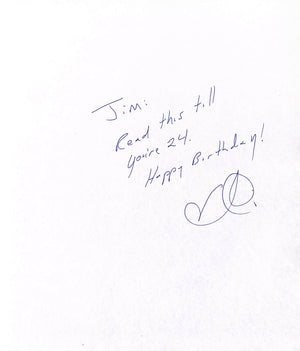 Jim:
Read this till
you're 24.
Happy Birthday!